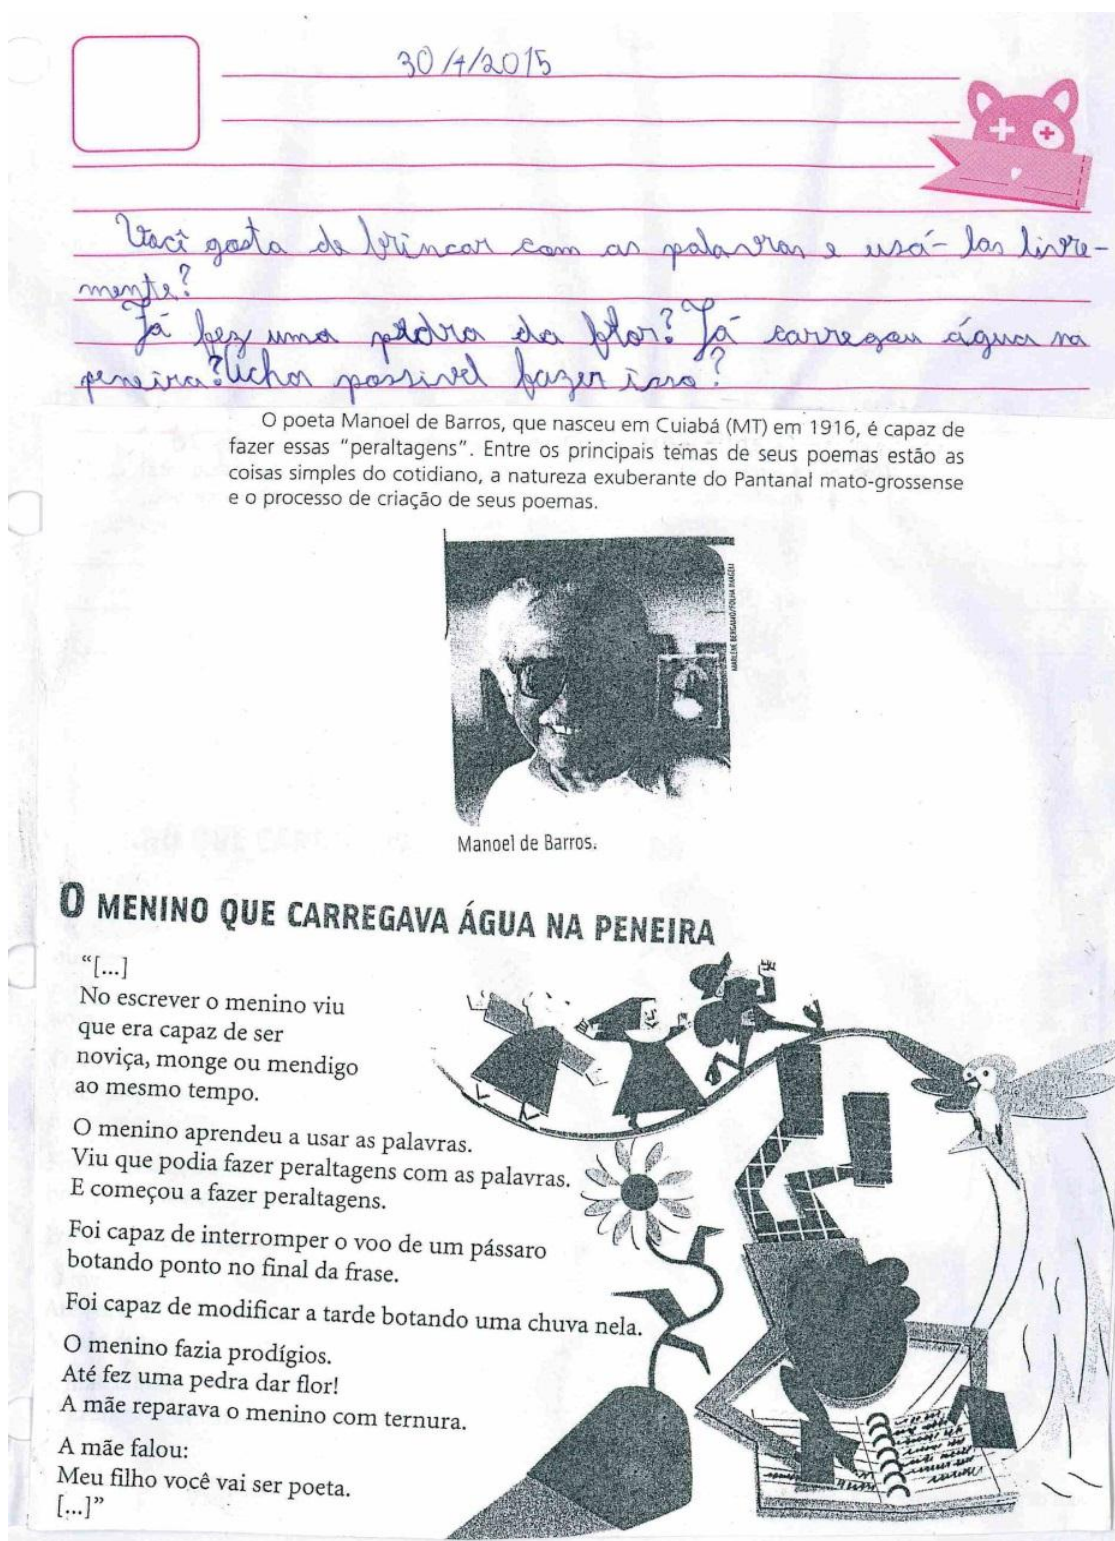 30/4/2015
Você gosta de brincar com as palavras e usá-las livre-
mente?
Já fez uma pedra da flor? Já carregou água na
peneira? Acha possivel fazer isso?
O poeta Manoel de Barros, que nasceu em Cuiabá (MT) em 1916, é capaz de
fazer essas “peraltagens”. Entre os principais temas de seus poemas estão as
coisas simples do cotidiano, a natureza exuberante do Pantanal mato-grossense
e o processo de criação de seus poemas.
MARLENE BERGAMO/FOLHA IMAGEM
Manoel de Barros.
O MENINO QUE CARREGAVA ÁGUA NA PENEIRA
“[...]
No escrever o menino viu
que era capaz de ser
noviça, monge ou mendigo
ao mesmo tempo.
O menino aprendeu a usar as palavras.
Viu que podia fazer peraltagens com as palavras.
E começou a fazer peraltagens.
Foi capaz de interromper o voo de um pássaro
botando ponto no final da frase.
Foi capaz de modificar a tarde botando uma chuva nela.
O menino fazia prodígios.
Até fez uma pedra dar flor!
A mãe reparava o menino com ternura.
A mãe falou:
Meu filho você vai ser poeta.
[...]”